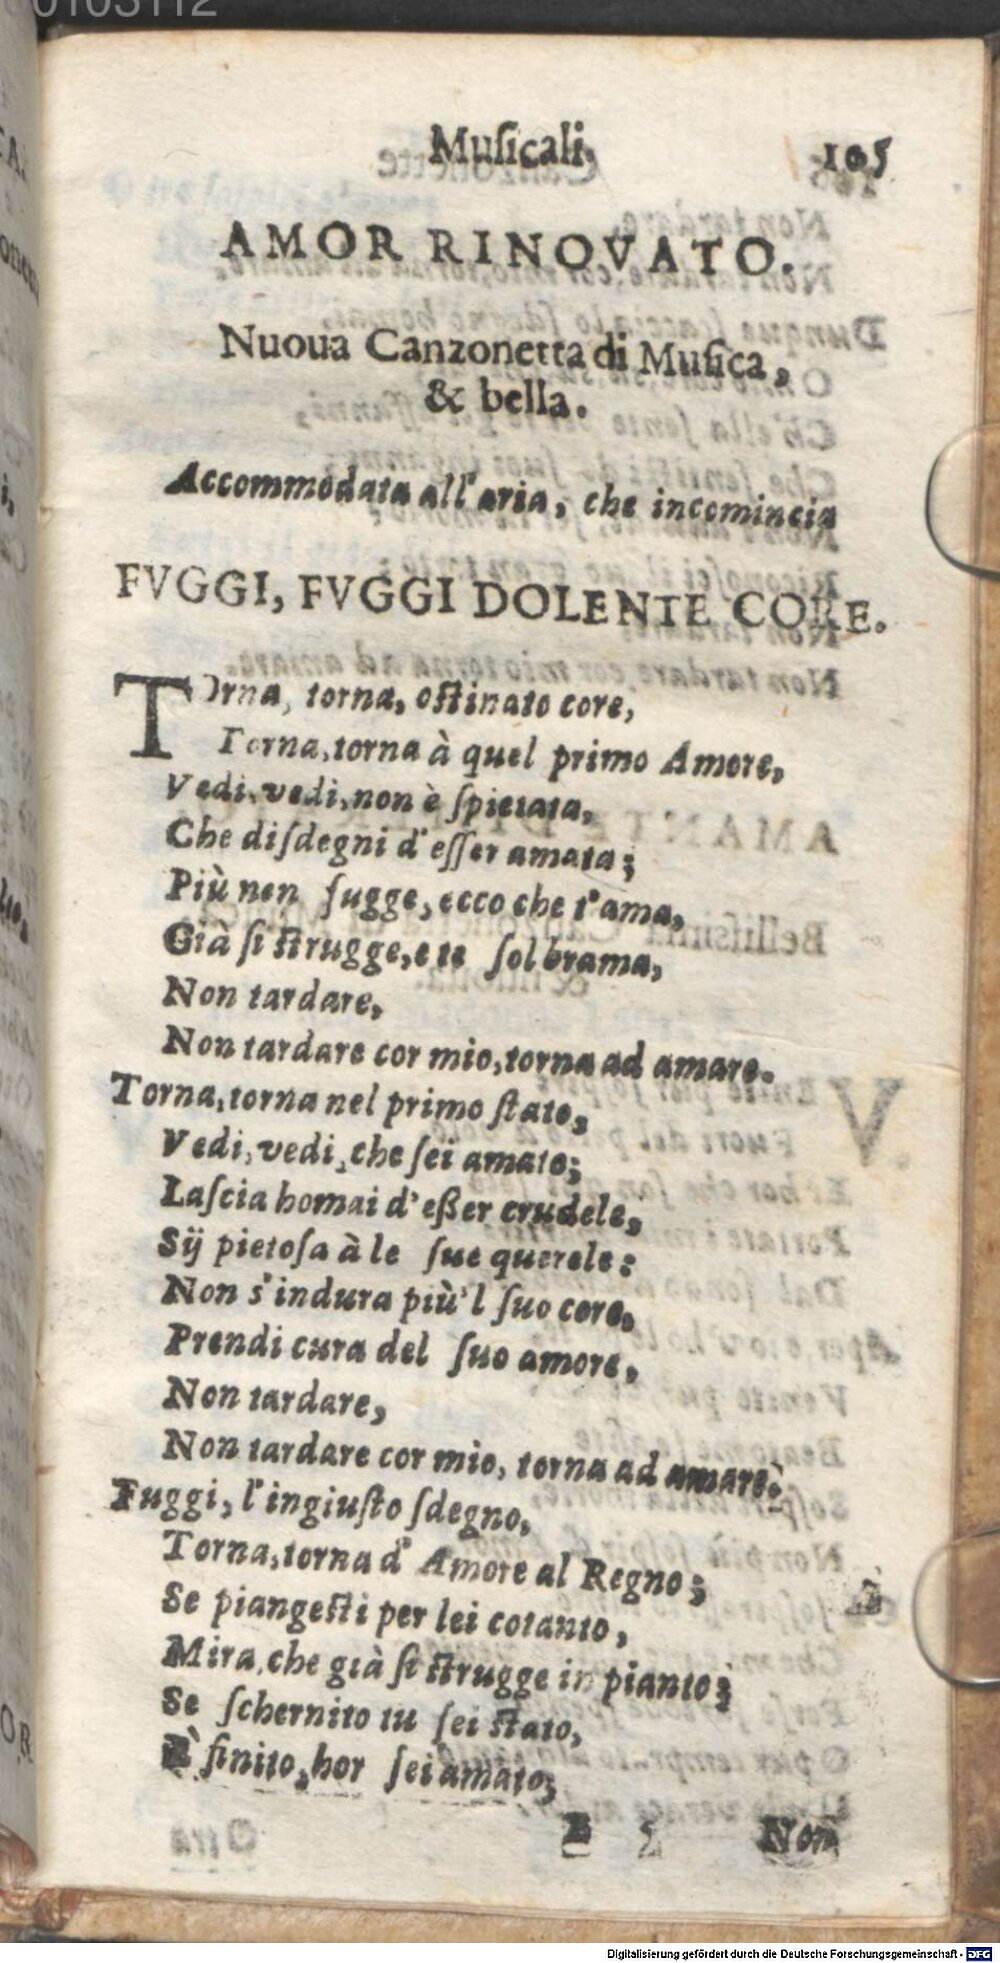 Muſicali. 105
AMOR RINOVATO.
Nuoua Canzonetta di Muſica,
& bella.
Accommodata all'aria, che incomincia
FVGGI, FVGGI DOLENTE CORE.
TOrna, torna, oſtinato core,
Torna, torna à quel primo Amore,
Vedi, vedi, non è ſpietata,
Che diſdegni d'eſſer amata;
Più non fugge, ecco che t'ama,
Già ſi ſtrugge, e te ſol brama,
Non tardare,
Non tardare cor mio, torna ad amare.
Torna, torna nel primo ſtato,
Vedi, vedi, che ſei amato;
Laſcia homai d'eßer crudele,
Sij pietoſa à le ſue querele:
Non s'indura più'l ſuo core,
Prendi cura del ſuo amore,
Non tardare,
Non tardare cor mio, torna ad amare.
Fuggi, l'ingiuſto ſdegno,
Torna, torna d'Amore al Regno;
Se piangeſti per lei cotanto,
Mira, che già ſi ſtrugge in pianto;
Se ſchernito tu ſei ſtato,
È finito, hor ſei amato;
E 5 Non
Digitalisierung gefördert durch die Deutsche Forschungsgemeinschaft - DFG